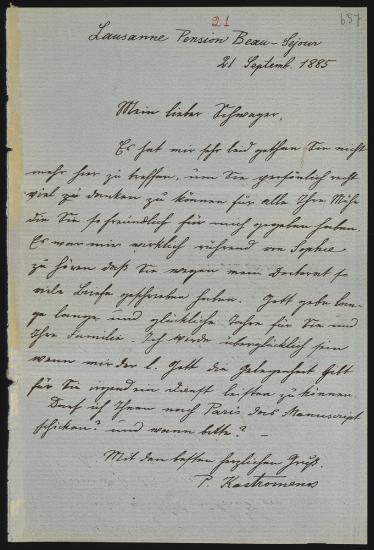 21
657
Lausanne Pension Beau-Sejour
21 Septemb. 1885
Mein lieber Schwager,
Es hat mir sehr leid gethan Sie nicht
mehr hier zu treffen, um Sie persönlich recht
viel zu danken zu können für alle Ihre Mühe
die Sie so freundlich für mich gegeben haben.
Es war mir wirklich rührend von Sophie
zu hören daß Sie wegen mein Doctorat so
viele Briefe geschrieben haben. Gott gebe lan-
ge lange und glückliche Jahre für Sie und
Ihre Familie. Ich werde überglücklich sein
wenn mir der l. Gott die Gelegenheit gibt
für Sie irgend ein Dienst leisten zu können.
Darf ich Ihnen nach Paris das Manuscript
schicken? und wann bitte? —
Mit den besten herzlichen Gruß.
P. Kastromenos